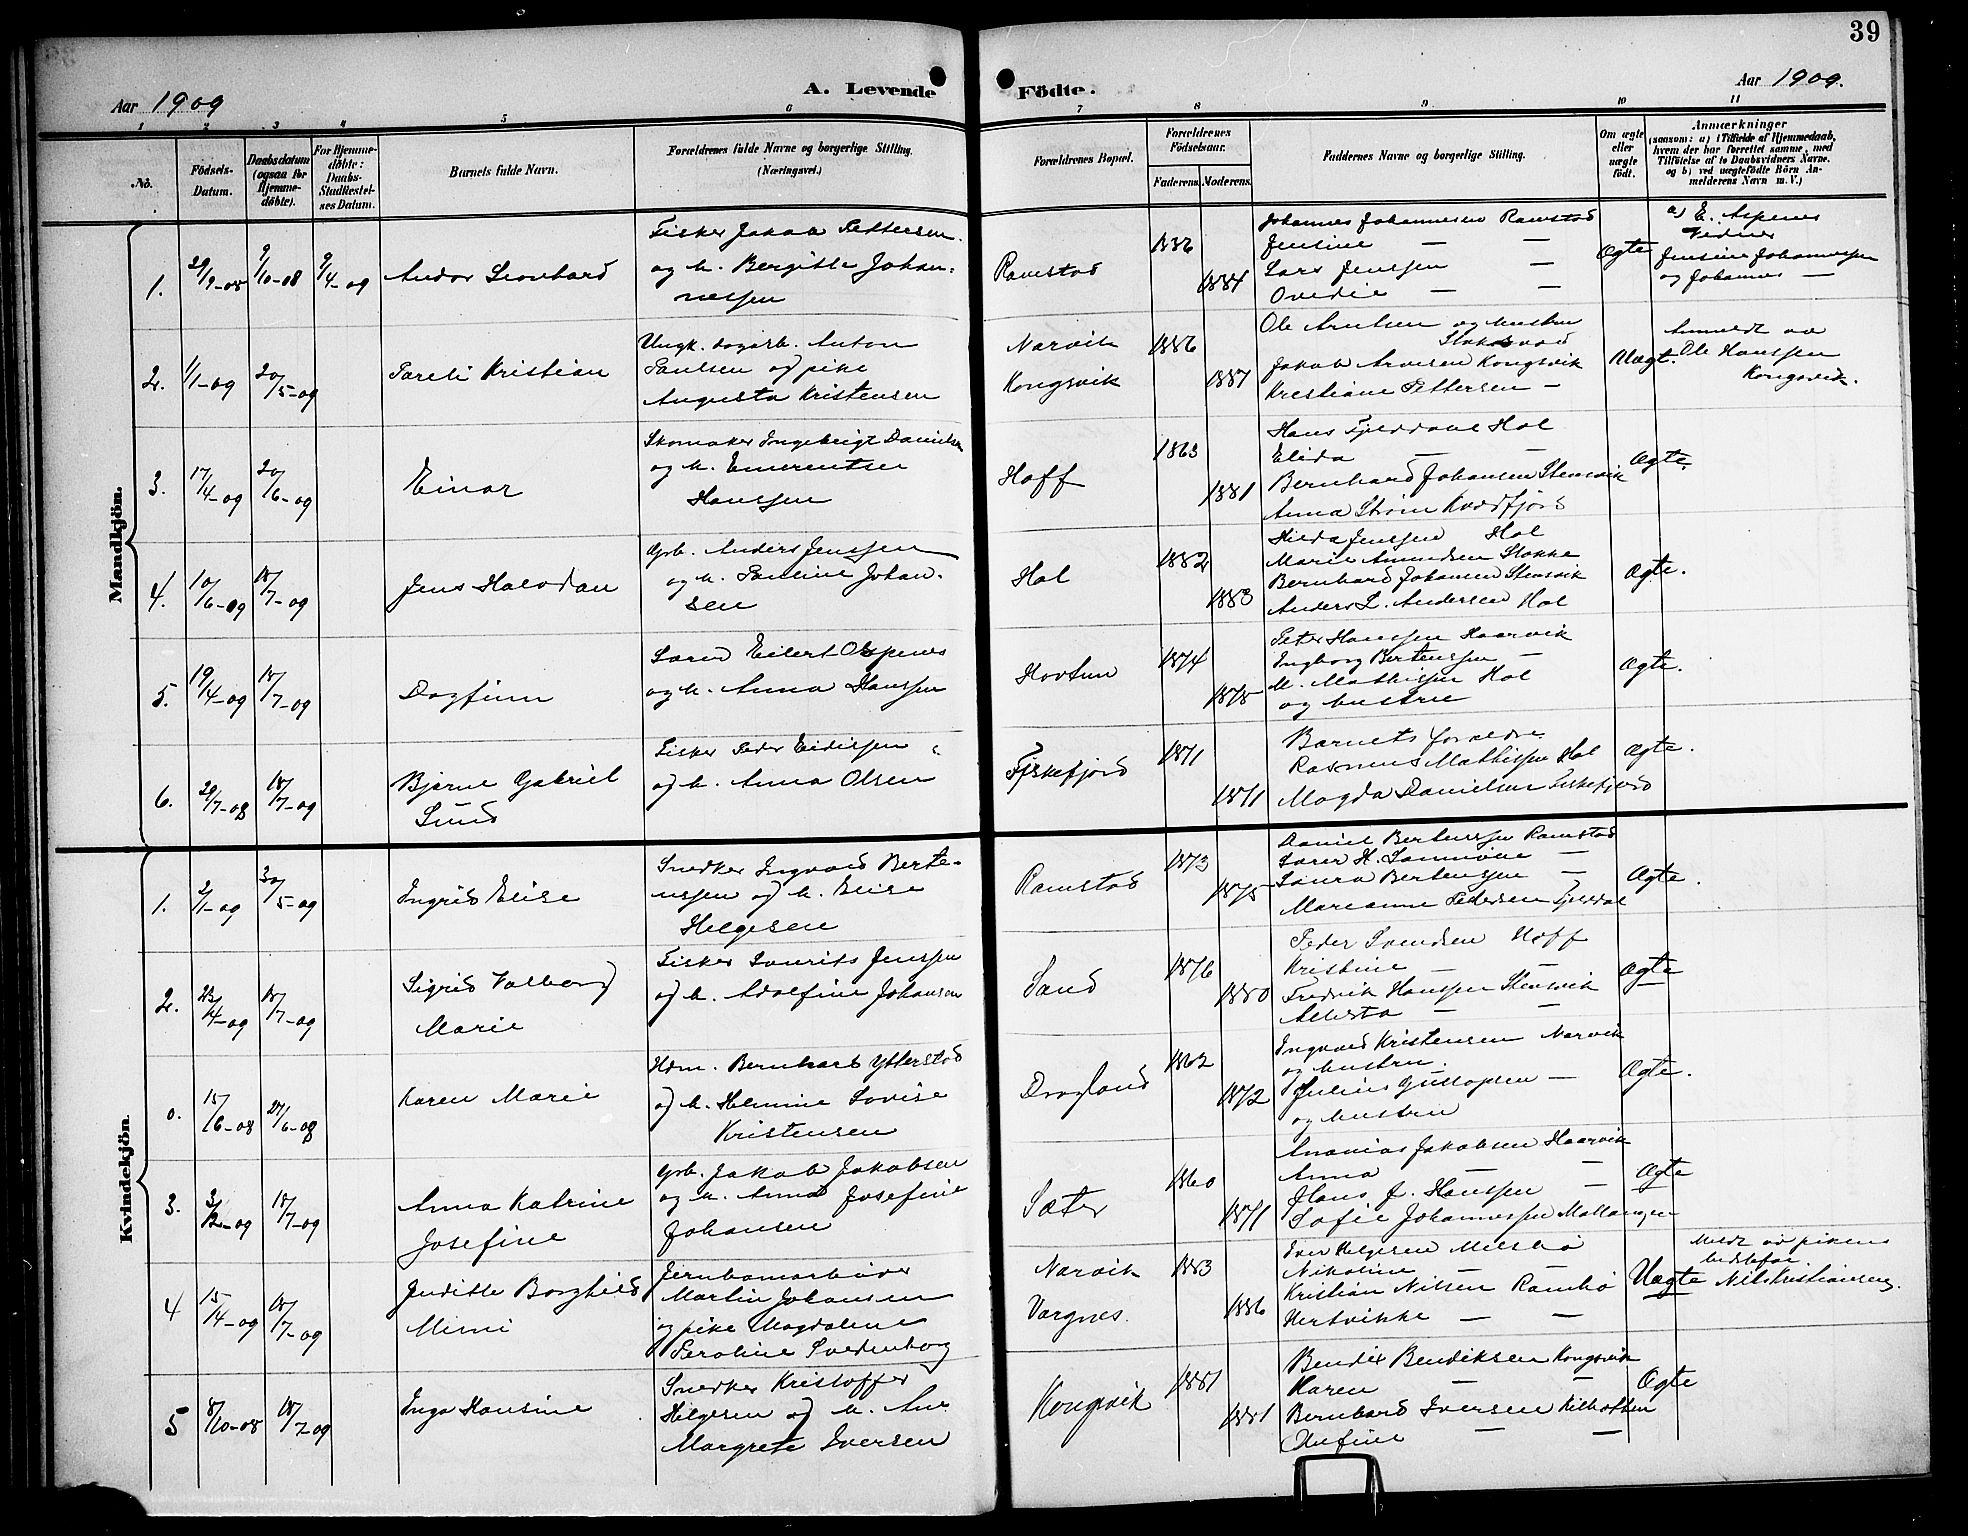 39
Aar 1909
A. Levende
Födte.
Aar 1909.
1 2 3 4 5 6 7 8 9 10 11
No.
Födsels-
Datum.
Daabsdatum
(ogsaa for
Hjemme-
döbte).
For Hjemme-
döbte:
Daabs-
Stadfæstel-
ses Datum.
Barnets fulde Navn.
Forældrenes fulde Navne og borgerlige Stilling.
(Næringsvei.)
Forældrenes Bopæl.
Forældrenes
Födselsaar.
Faderens. Moderens.
Faddernes Navne og borgerlige Stilling.
Om ægte
eller
uægte
födt.
Anmærkninger
(saasom: a) i Tilfælde af Hjemmedaab,
hvem der har forrettet samme, med
Tilföielse af to Daabsvidners Navne.
og b) ved uægtefödte Börn An-
melderens Navn m.V.)
Mandkjön.
1. 29/9-08 9/10-08 9/4-09 Andor Leonhard
Fisker Jakob Pettersen
og h. Bergitte Johan-
nessen
Ramstad 1886 1884
Johannes Johannesen Ramstad
Jensine — —
Lars Jenssen —
Ovedie — —
Ægte
a) E. Aspenes
Vidner
Jensine Johannessen
og Johannes —
2. 1/1-09 20/5-09 Pareli Kristian
Ungk. dagarb. Anton
Paulsen og pike
Augusta Kristensen
Narvik
Kongsvik
1886 1887
Ole Arntsen og hustru
Jakob Arnesen Kongsvik
Kristiane Pettersen —
Uægt.
Anmeldt av
Ole Hanssen
Kongsvik.
3. 17/4-09 20/6-09 Einar
Skomaker Ingebrigt Danielsen
og h. Emerentse
Hanssen
Hoff 1863 1881
Hans Fjelddal Hol
Elida — —
Bernhard Johansen Stensvik
Anna Strøm Kvædfjord
Ægte.
4. 10/6-09 18/7-09 Jens Halvdan
Grb. Anders Jenssen
og h. Pauline Johan-
sen
Hol 1882 1883
Hilda Jenssen Hol
Marie Amundsen Stokke
Bernhard Johansen Stensvik
Anders L. Andersen Hol
Ægte.
5. 19/4-09 18/7-09 Dagfinn
Lærer Eilert Aspenes
og h. Anna Hanssen
Hovtun 1874 1878
Peter Hanssen Haarvik
Ingborg Bertenssen —
M. Mathissen Hol
og hustru
Ægte.
6. 29/7-08 18/7-09 Bjarne Gabriel
Sund
Fisker Peder Eidissen
og h. Anna Olsen
Fiskefjord 1871 1871
Barnets forældre
Rasmus Mathissen Hol
Magda Danielsen Fiskefjord
Ægte.
Kvindekjön
1. 2/1-09 30/5-09 Ingrid Elise
Snedker Ingvald Berte-
nssen og h. Elise
Helgesen
Ramstad 1873 1875
Daniel Bertenssen Ramstad
Laura Bertenssen —
Marianne Pedersen Fjelddal
Ægte.
2. 23/4-09 18/7-09 Sigrid Valborg
Marie
Fisker Laurits Jenssen
og h. Adolfine Johansen
Sand 1876 1880
Peder Svendsen Hoff
Kristine — —
Fredrik Hanssen Stensvik
Alberta — —
Ægte
0. 15/6-08 27/6-08 Karen Marie
Hdm. Bernhard Ytterstad
og h. Helmine Lovise
Kristensen
Dragland 1862 1872
Ingvald Kristensen Narvik
og hustru.
Julius Gustavsen —
og hustru
Ægte.
3. 3/2-09 18/7-09 Anna Katrine
Josefine
Grb. Jakob Jakobsen
og h. Anna Josefine
Johansen
Sæter 1860 1871
Ananias Jakobsen Haarvik
Anna — —
Hans J. Hanssen —
Sofie Johannessen Malangen
Ægte
4 15/4-09 18/7-09 Juditte Borghild
Mimi
Jernbanearbeider
Martin Johansen
og pike Magdalene
Peroline Svedenborg
Narvik
Vargnes.
1883 1886
Iver Helgesen Melsbø
Nikoline — —
Kristian Nilsen Rambø
Hertvikke — —
Uægte
Meldt av pikens
bedstefar.
Nils Kristiansen.
5 8/10-08 18/7-09 Inga Hansine
Snedker Kristoffer
Helgesen og h. Ane
Margrete Iversen
Kongsvik 1881 1881
Bendix Bendiksen Kongsvik
Karen — —
Bernhard Iversen Kilbotten
— —
Ægte